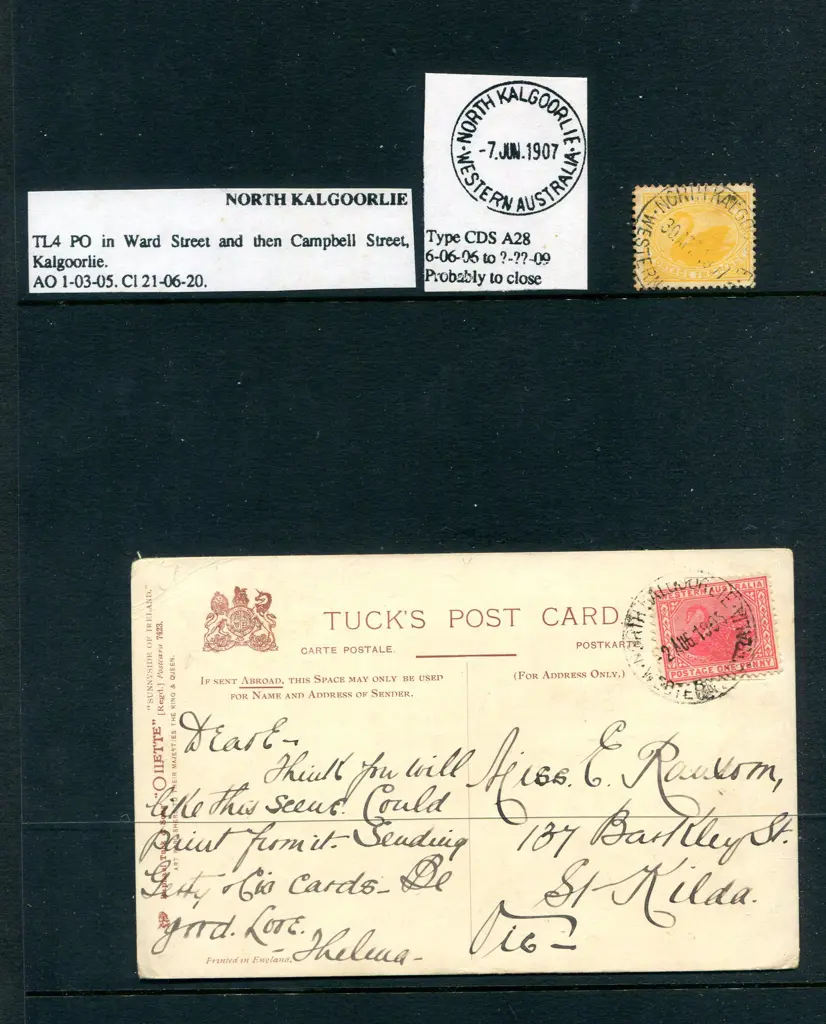 NORTH KALGOORLIE
TL4 PO in Ward Street and then Campbell Street,
Kalgoorlie.
AO 1-03-05. Cl 21-06-20.
·NORTH KALGOORLIE·
-7.JUN.1907
WESTERN AUSTRALIA
Type CDS A28
6-06-06 to ?-??-09
Probably to close
NORTH KALGOO
WESTERN
POSTAGE
TUCK'S POST CARD.
CARTE POSTALE.
POSTKARTE
IF SENT ABROAD, THIS SPACE MAY ONLY BE USED
FOR NAME AND ADDRESS OF SENDER.
(FOR ADDRESS ONLY.)
WESTERN AUSTRALIA
POSTAGE ONE PENNY
2 AUG 190
"SUNNYSIDE OF IRELAND."
"OILETTE" [Regd.] Postcard 7423.
THEIR MAJESTIES THE KING & QUEEN.
Dear E-
Think you will
like this scene. Could
paint from it- Sending
Getty & Cis cards- Be
good. Love.
- Thelma-
Miss. E. Ransom,
137 Barkley St.
St Kilda.
Vic-
Printed in England.